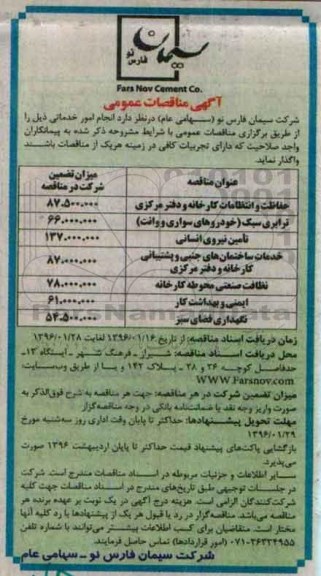 سیمان
فارس نو
Fars Nov Cement Co.
آگهی مناقصات عمومی
شرکت سیمان فارس نو (سهامی عام) درنظر دارد انجام امور خدماتی ذیل را
از طریق برگزاری مناقصات عمومی با شرایط مشروحه ذکر شده به پیمانکاران
واجد صلاحیت که دارای تجربیات کافی در زمینه هریک از مناقصات باشند
واگذار نماید.
عنوان مناقصه میزان تضمین شرکت در مناقصه
حفاظت و انتظامات کارخانه و دفتر مرکزی ۸۷.۵۰۰.۰۰۰
ترابری سبک (خودروهای سواری و وانت) ۶۶.۰۰۰.۰۰۰
تأمین نیروی انسانی ۱۳۷.۰۰۰.۰۰۰
خدمات ساختمان‌های جنبی و پشتیبانی
کارخانه و دفتر مرکزی ۸۷.۰۰۰.۰۰۰
نظافت صنعتی محوطه کارخانه ۷۸.۰۰۰.۰۰۰
ایمنی و بهداشت کار ۶۱.۰۰۰.۰۰۰
نگهداری فضای سبز ۵۴.۵۰۰.۰۰۰
زمان دریافت اسناد مناقصه: از تاریخ ۱۳۹۶/۰۱/۱۶ لغایت ۱۳۹۶/۰۱/۲۸
محل دریافت اسناد مناقصه: شیراز ـ فرهنگ شهر ـ ایستگاه ۱۳ـ
حدفاصل کوچه ۲۶ و ۲۸ ـ پلاک ۱۴۲ و یا از طریق وب‌سایت:
WWW.Farsnov.com
میزان تضمین شرکت در هر مناقصه: جهت هر مناقصه به شرح فوق‌الذکر به
صورت واریز وجه نقد یا ضمانتنامه بانکی در وجه مناقصه‌گزار
مهلت تحویل پیشنهادها: حداکثر تا پایان وقت اداری روز سه‌شنبه مورخ
۱۳۹۶/۰۱/۲۹
بازگشایی پاکت‌های پیشنهاد قیمت حداکثر تا پایان اردیبهشت ۱۳۹۶ صورت
می‌پذیرد.
سایر اطلاعات و جزئیات مربوطه در اسناد مناقصات مندرج است. شرکت
در جلسات توجیهی طبق تاریخ‌های مندرج در اسناد مناقصات جهت کلیه
شرکت‌کنندگان الزامی است. هزینه درج آگهی در یک نوبت بر عهده برنده هر
مناقصه می‌باشد. مناقصه‌گزار در رد یا قبول هر یک از پیشنهادها یا رد کلیه آنها
مختار است. متقاضیان برای کسب اطلاعات بیشتر می‌توانند با شماره تلفن
۰۷۱-۳۶۳۳۴۹۵۵ (امور قراردادها) تماس حاصل فرمایند.
شرکت سیمان فارس نو ـ سهامی عام